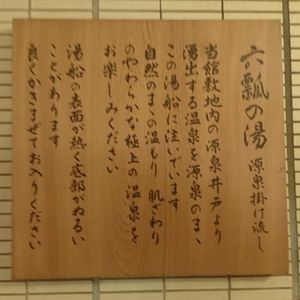 六瓢の湯 源泉掛け流し
当館敷地内の源泉井戸より
湧出する温泉を源泉のまゝ
この湯船に注いでいます
自然のまゝの温もり 肌ざわり
のやわらかな極上の温泉を
お楽しみください
湯船の表面が熱く底部がぬるい
ことがあります
良くかきまぜてお入りください